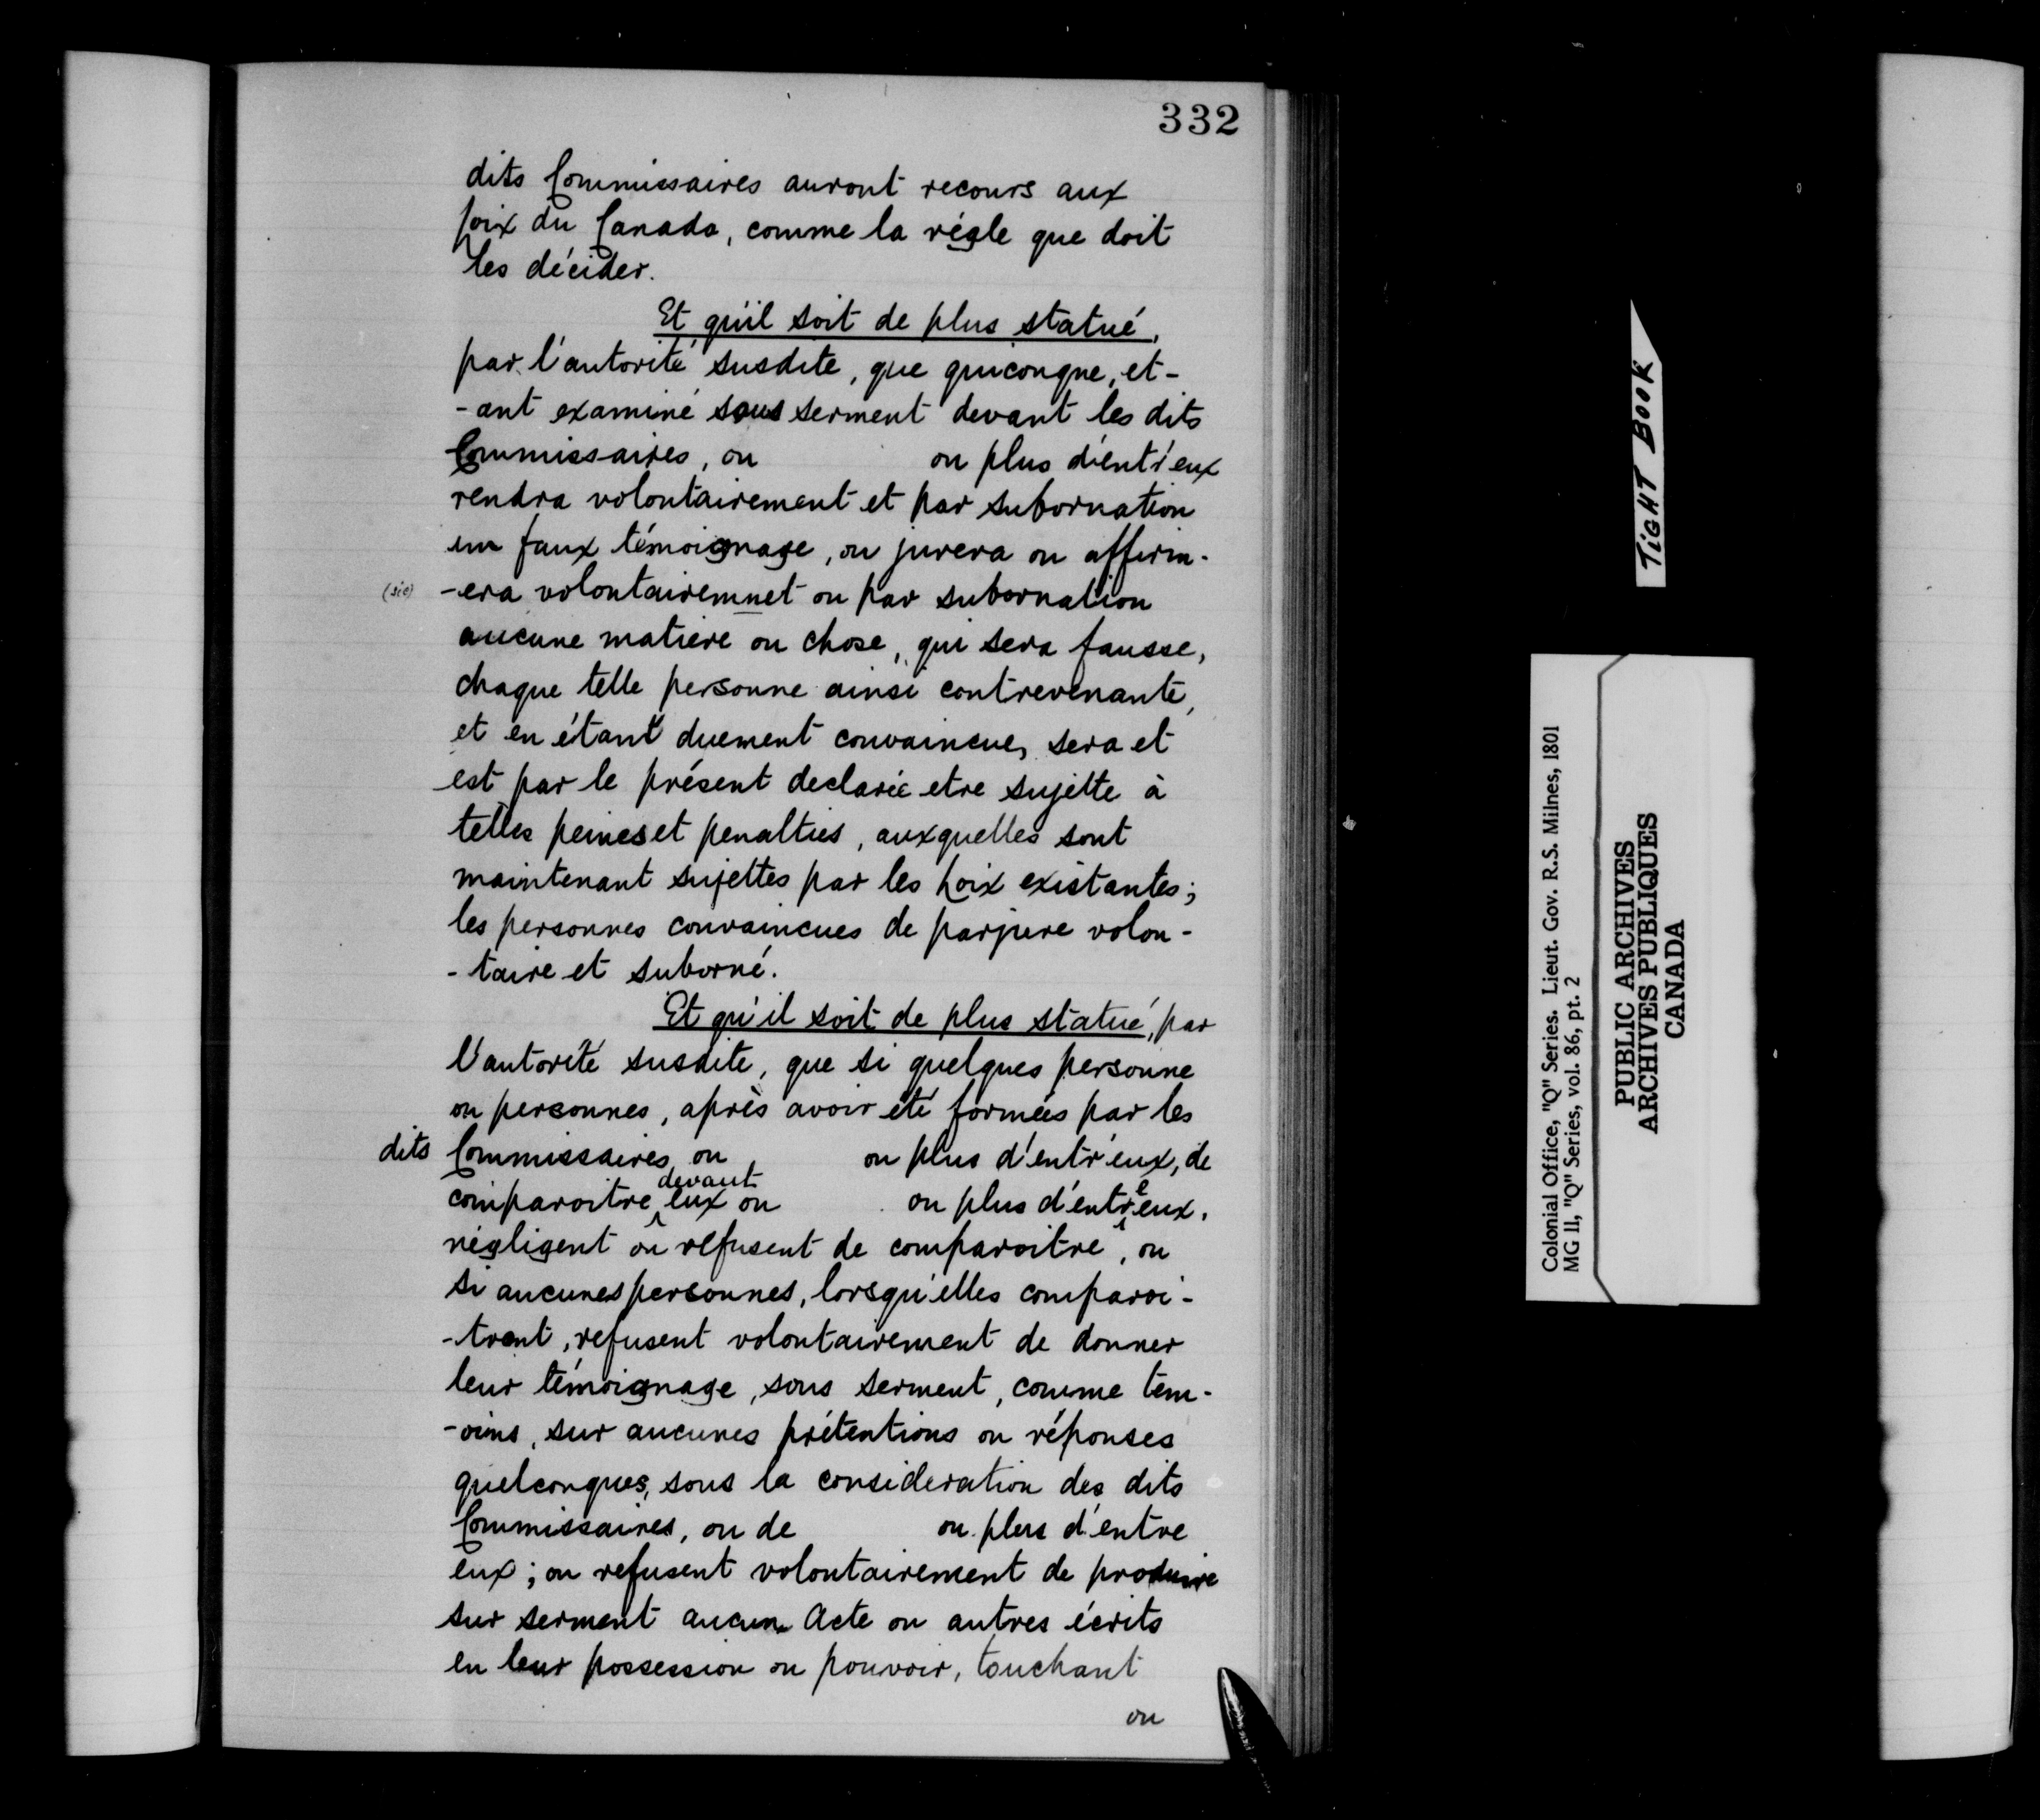 332
dits Commissaires auront recours aux
Loix du Canada, comme la régle que doit
les décider.
Et qu'il soit de plus statué,
par l'autorité susdite, que quiconque, et-
-ant examiné sous serment devant les dits
Commissaires, ou ou plus d'entr'eux
rendra volontairement et par subornation
un faux témoignage, ou jurera ou affirm-
(sic) -era volontairemnet ou par subornation
aucune matiere ou chose, qui sera fausse,
chaque telle personne ainsi contrevenante,
et en étant duement convaincue, sera et
est par le présent declarée etre sujette à
telles peines et penalties, auxquelles sont
maintenant sujettes par les Loix existantes;
les personnes convaincues de parjure volon-
-taire et suborné.
Et qu'il soit de plus statué, par
l'autorité susdite, que si quelques personne
ou personnes, après avoir été formées par les
dits Commissaires, ou ou plus d'entr'eux, de
comparoitre devant eux ou ou plus d'entre eux,
négligent ou refusent de comparoitre, ou
si aucunes personnes, lorsqu'elles comparoi-
-tront, refusent volontairement de donner
leur témoignage, sous serment, comme tém-
-oins, sur aucunes prétentions ou réponses
quelconques, sous la consideration des dits
Commissaires, ou de ou plus d'entre
eux; ou refusent volontairement de produire
sur serment aucun Acte ou autres écrits
en leur possession ou pouvoir, touchant
ou
TIGHT BOOK
Colonial Office, "Q" Series. Lieut. Gov. R.S. Milnes, 1801
MG 11, "Q" Series, vol. 86, pt. 2
PUBLIC ARCHIVES
ARCHIVES PUBLIQUES
CANADA